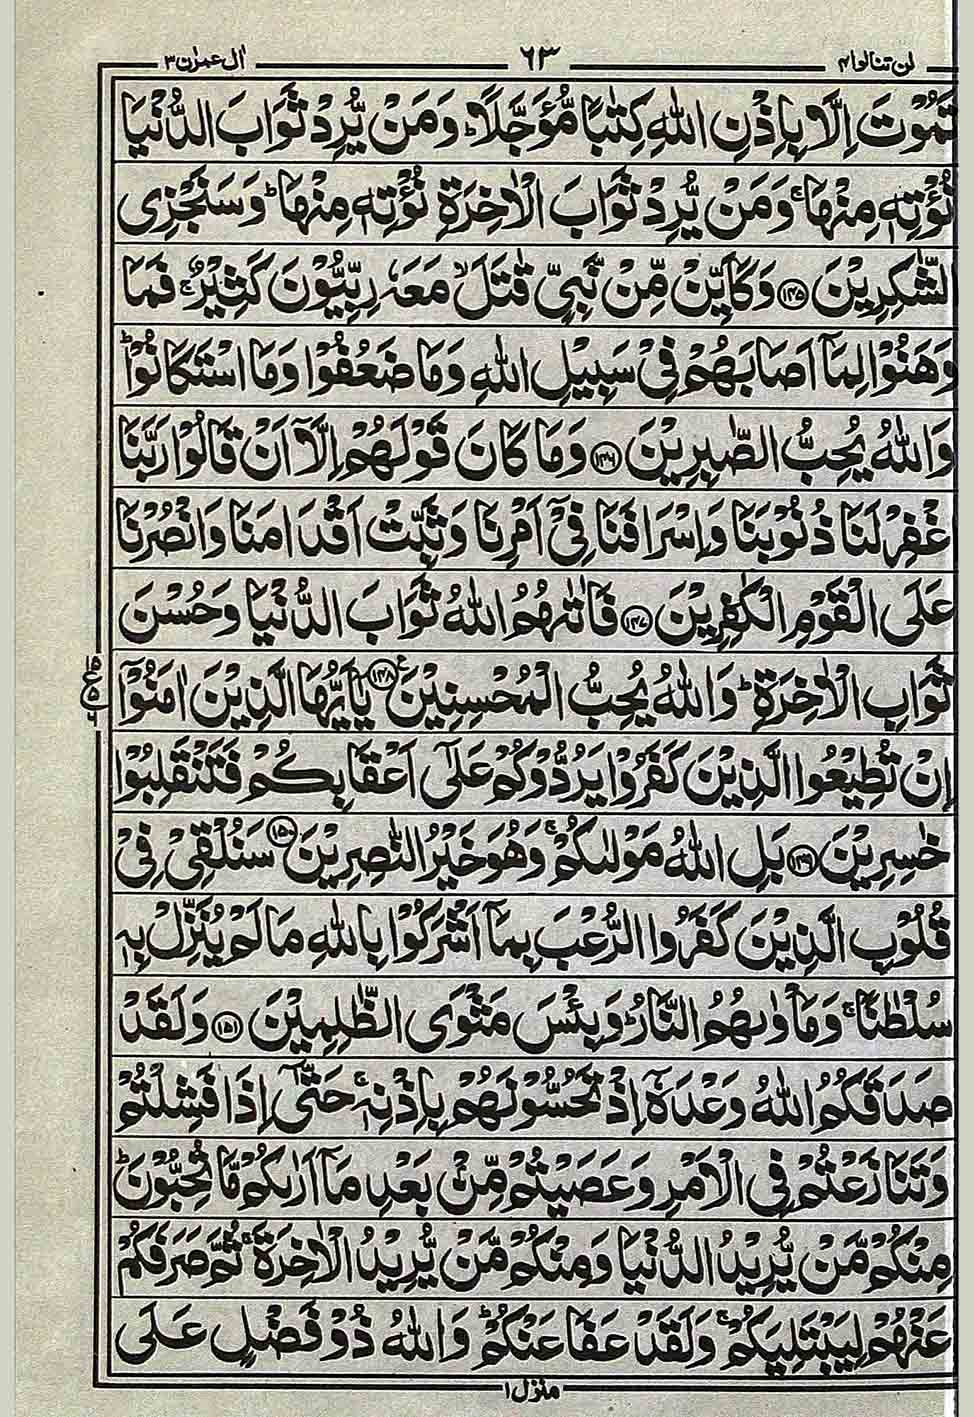 لن تنالوا ۴ ۶۳ اٰل عمرٰن ۳
تَمُوْتَ اِلَّا بِاِذْنِ اللّٰهِ كِتٰبًا مُّؤَجَّلًا ؕ وَمَنْ يُّرِدْ ثَوَابَ الدُّنْيَا
نُؤْتِهٖ مِنْهَا ۚ وَمَنْ يُّرِدْ ثَوَابَ الْاٰخِرَةِ نُؤْتِهٖ مِنْهَا ؕ وَسَنَجْزِى
لشّٰكِرِيْنَ ﴿۱۴۵﴾ وَكَاَيِّنْ مِّنْ نَّبِىٍّ قٰتَلَ ۙ مَعَهٗ رِبِّيُّوْنَ كَثِيْرٌ ۚ فَمَا
وَهَنُوْا لِمَاۤ اَصَابَهُمْ فِىْ سَبِيْلِ اللّٰهِ وَمَا ضَعُفُوْا وَمَا اسْتَكَانُوْا ؕ
وَاللّٰهُ يُحِبُّ الصّٰبِرِيْنَ ﴿۱۴۶﴾ وَمَا كَانَ قَوْلَهُمْ اِلَّاۤ اَنْ قَالُوْا رَبَّنَا
غْفِرْ لَنَا ذُنُوْبَنَا وَاِسْرَافَنَا فِىْۤ اَمْرِنَا وَثَبِّتْ اَقْدَامَنَا وَانْصُرْنَا
عَلَى الْقَوْمِ الْكٰفِرِيْنَ ﴿۱۴۷﴾ فَاٰتٰىهُمُ اللّٰهُ ثَوَابَ الدُّنْيَا وَحُسْنَ
ثَوَابِ الْاٰخِرَةِ ؕ وَاللّٰهُ يُحِبُّ الْمُحْسِنِيْنَ ﴿۱۴۸﴾ يٰۤاَيُّهَا الَّذِيْنَ اٰمَنُوْۤا
اِنْ تُطِيْعُوا الَّذِيْنَ كَفَرُوْا يَرُدُّوْكُمْ عَلٰۤى اَعْقَابِكُمْ فَتَنْقَلِبُوْا
خٰسِرِيْنَ ﴿۱۴۹﴾ بَلِ اللّٰهُ مَوْلٰىكُمْ ۚ وَهُوَ خَيْرُ النّٰصِرِيْنَ ﴿۱۵۰﴾ سَنُلْقِىْ فِىْ
قُلُوْبِ الَّذِيْنَ كَفَرُوا الرُّعْبَ بِمَاۤ اَشْرَكُوْا بِاللّٰهِ مَا لَمْ يُنَزِّلْ بِهٖ
سُلْطٰنًا ۚ وَمَاْوٰىهُمُ النَّارُ ؕ وَبِئْسَ مَثْوَى الظّٰلِمِيْنَ ﴿۱۵۱﴾ وَلَقَدْ
صَدَقَكُمُ اللّٰهُ وَعْدَهٗۤ اِذْ تَحُسُّوْنَهُمْ بِاِذْنِهٖ ۚ حَتّٰۤى اِذَا فَشِلْتُمْ
وَتَنَازَعْتُمْ فِى الْاَمْرِ وَعَصَيْتُمْ مِّنْۢ بَعْدِ مَاۤ اَرٰىكُمْ مَّا تُحِبُّوْنَ ؕ
مِنْكُمْ مَّنْ يُّرِيْدُ الدُّنْيَا وَمِنْكُمْ مَّنْ يُّرِيْدُ الْاٰخِرَةَ ۚ ثُمَّ صَرَفَكُمْ
عَنْهُمْ لِيَبْتَلِيَكُمْ ۚ وَلَقَدْ عَفَا عَنْكُمْ ؕ وَاللّٰهُ ذُوْ فَضْلٍ عَلَى
منزل ۱